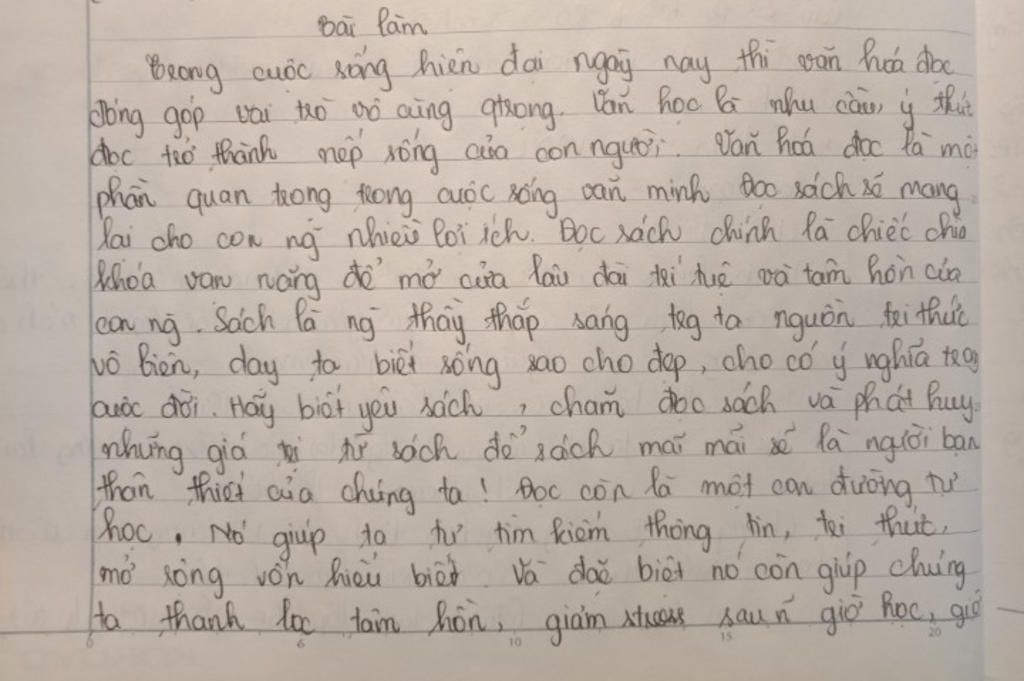 Bài làm
Trong cuộc sống hiện đại ngày nay thì văn hoá đọc
đóng góp vai trò vô cùng qtrọng. Văn học là nhu cầu, ý thức
đọc trở thành nếp sống của con người. Văn hoá đọc là một
phần quan trọng trong cuộc sống văn minh Đọc sách sẽ mang
lại cho con ng̃ nhiều lợi ích. Đọc sách chính là chiếc chìa
khóa vạn năng để mở cửa lâu đài trí tuệ và tâm hồn của
con ng̃. Sách là ng̃ thầy thắp sáng trg ta nguồn tri thức
vô biên, dạy ta biết sống sao cho đẹp, cho có ý nghĩa trong
cuộc đời. Hãy biết yêu sách, chăm đọc sách và phát huy
những giá trị từ sách để sách mãi mãi sẽ là người bạn
thân thiết của chúng ta! Đọc còn là một con đường tự
học. Nó giúp ta tự tìm kiếm thông tin, tri thức,
mở rộng vốn hiểu biết. Và đặc biệt nó còn giúp chúng
ta thanh lọc tâm hồn, giảm stress sau n̄ giờ học, giờ
0 5 10 15 20